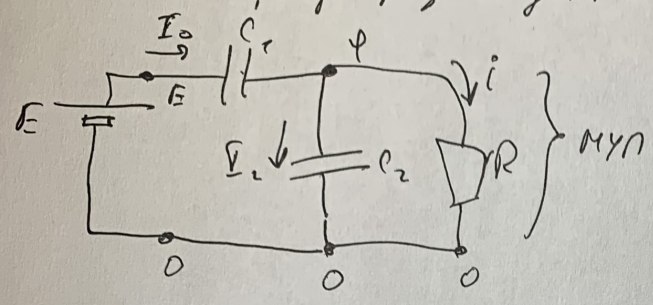 I₀
C₁
φ
i
E
E
I₂
C₂
R
МУЛ
0
0
0